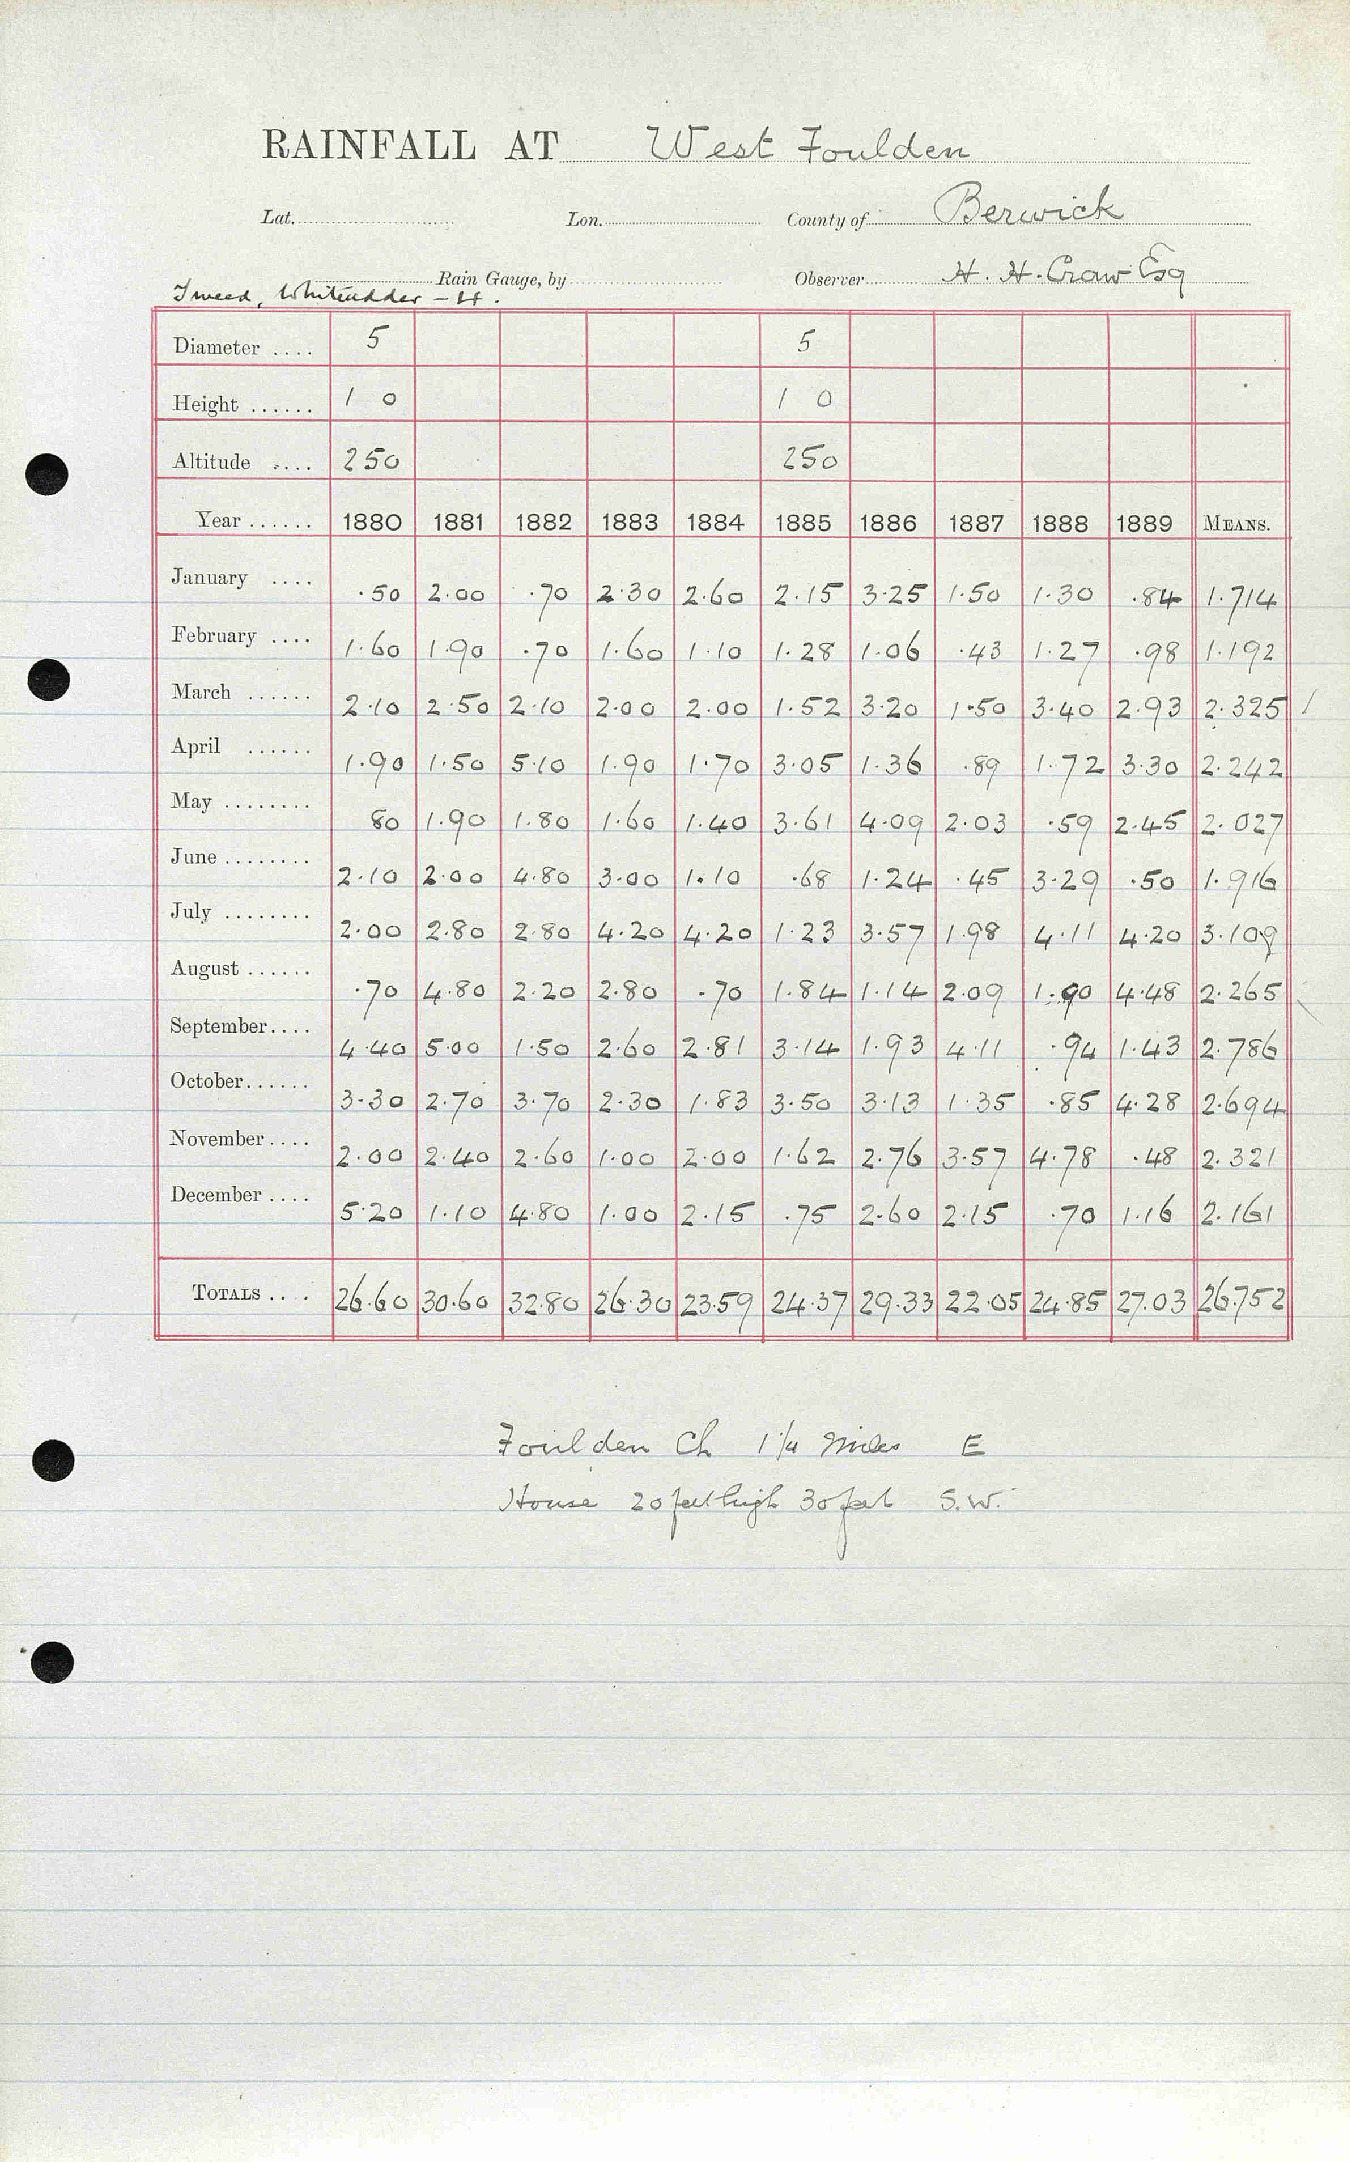 RAINFALL AT West Foulden
Lat. Lon. County of Berwick
Rain Gauge, by Observer H. H. Craw Esq
Tweed, Whiteadder - H.
Diameter .... 5 5
Height ...... 1 0 1 0
Altitude .... 250 250
Year ...... 1880 1881 1882 1883 1884 1885 1886 1887 1888 1889 MEANS.
January .... .50 2.00 .70 2.30 2.60 2.15 3.25 1.50 1.30 .84 1.714
February .... 1.60 1.90 .70 1.60 1.10 1.28 1.06 .43 1.27 .98 1.192
March ...... 2.10 2.50 2.10 2.00 2.00 1.52 3.20 1.50 3.40 2.93 2.325 /
April ...... 1.90 1.50 5.10 1.90 1.70 3.05 1.36 .89 1.72 3.30 2.242
May ........ 80 1.90 1.80 1.60 1.40 3.61 4.09 2.03 .59 2.45 2.027
June ........ 2.10 2.00 4.80 3.00 1.10 .68 1.24 .45 3.29 .50 1.916
July ........ 2.00 2.80 2.80 4.20 4.20 1.23 3.57 1.98 4.11 4.20 3.109
August ...... .70 4.80 2.20 2.80 .70 1.84 1.14 2.09 1.90 4.48 2.265
September .... 4.40 5.00 1.50 2.60 2.81 3.14 1.93 4.11 .94 1.43 2.786
October ...... 3.30 2.70 3.70 2.30 1.83 3.50 3.13 1.35 .85 4.28 2.694
November .... 2.00 2.40 2.60 1.00 2.00 1.62 2.76 3.57 4.78 .48 2.321
December .... 5.20 1.10 4.80 1.00 2.15 .75 2.60 2.15 .70 1.16 2.161
TOTALS .... 26.60 30.60 32.80 26.30 23.59 24.37 29.33 22.05 24.85 27.03 26.752
Foulden Ch 1 1/4 Miles E
House 20 feet high 30 feet S.W.